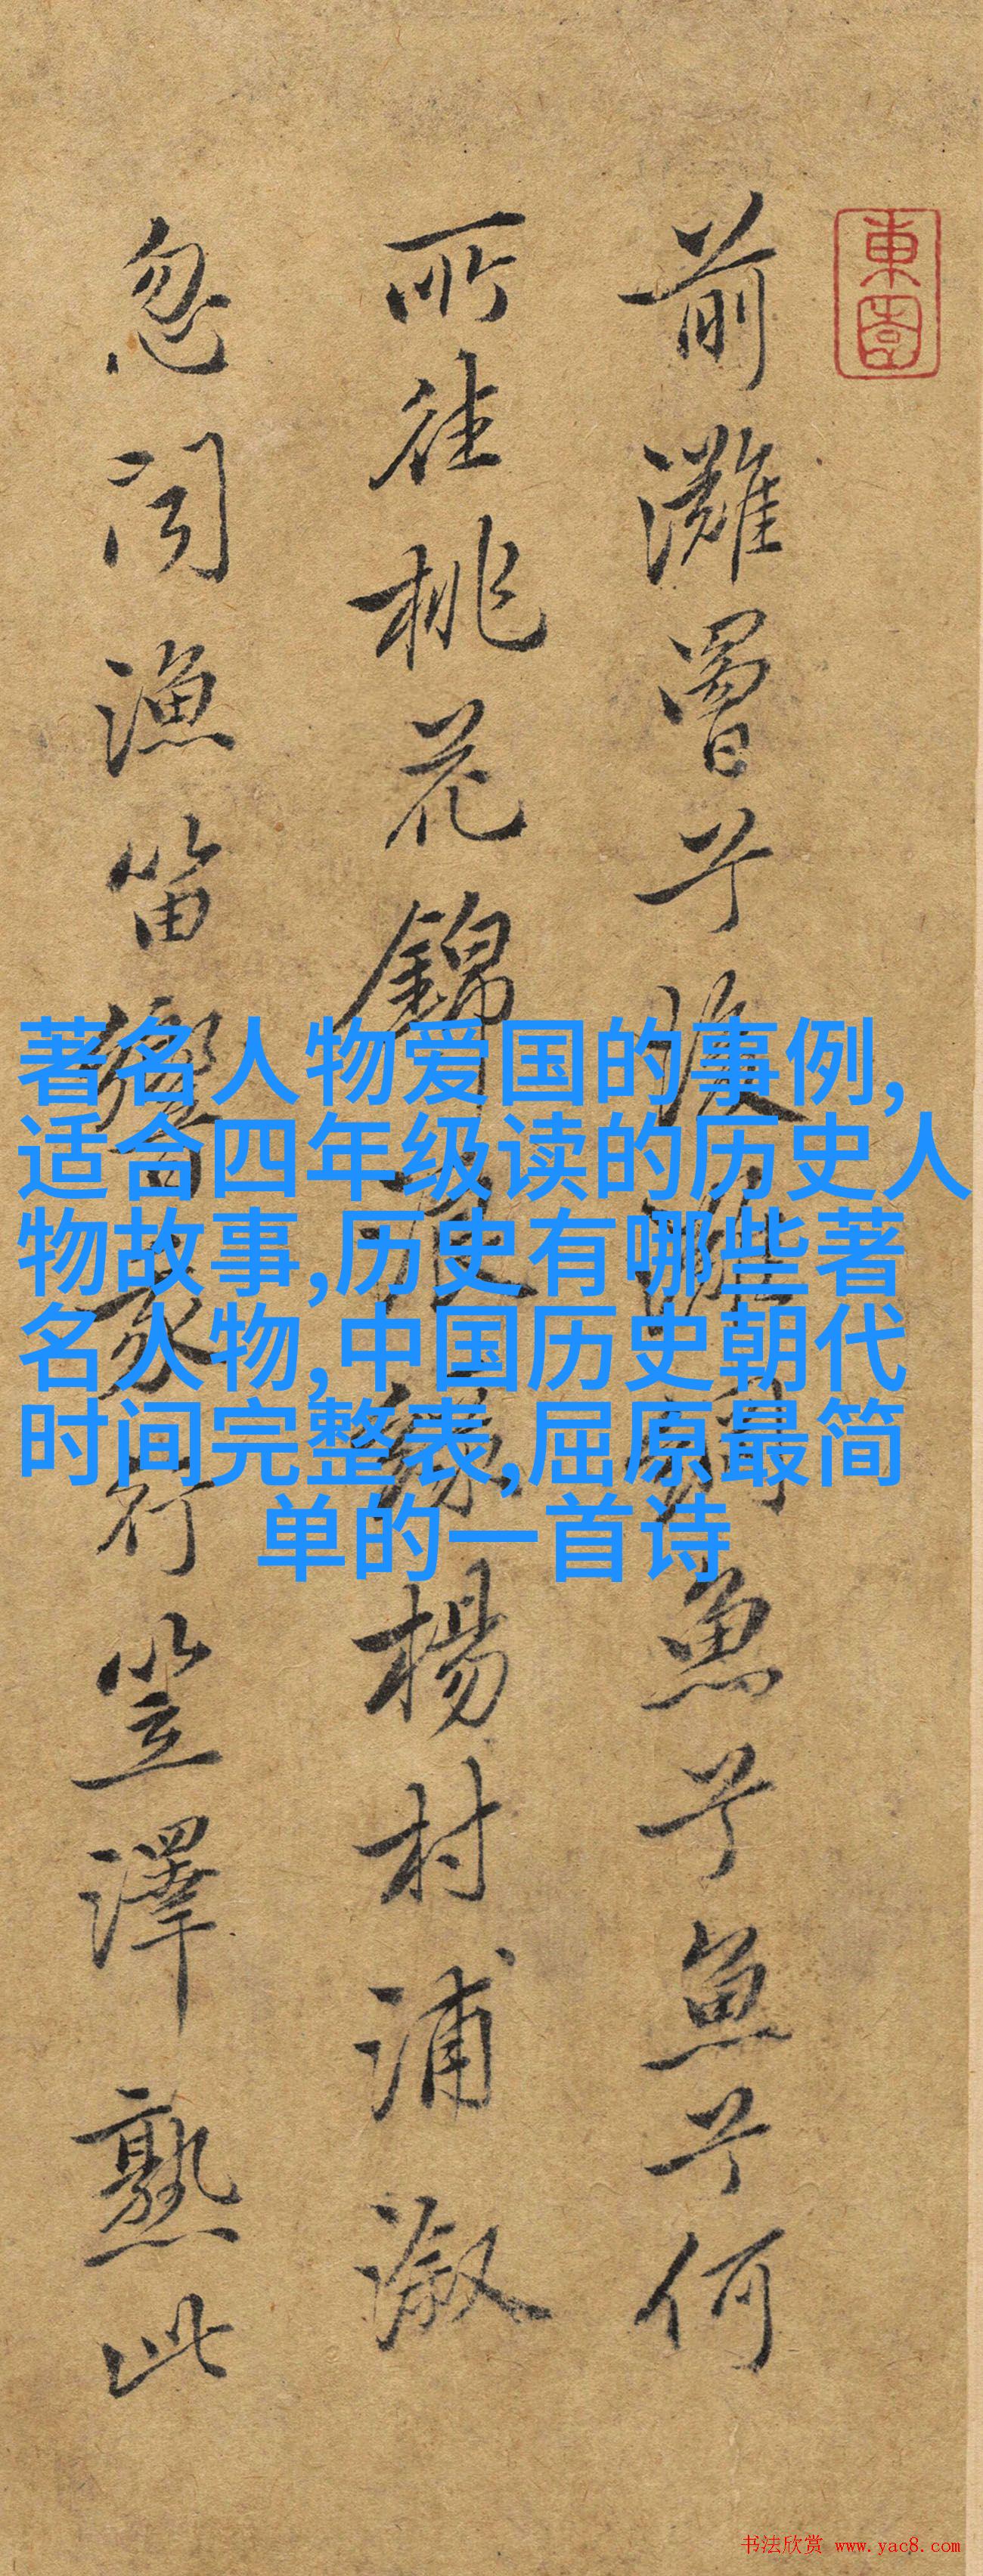 東園
前灘罾兮後灘網魚兮魚兮何
所往桃花錦浪綠楊村浦漵
忽聞漁笛響我行笠澤熟此
著名人物爱国的事例,
适合四年级读的历史人
物故事,历史有哪些著
名人物,中国历史朝代
时间完整表,屈原最简
单的一首诗
书法欣赏 www.yac8.com